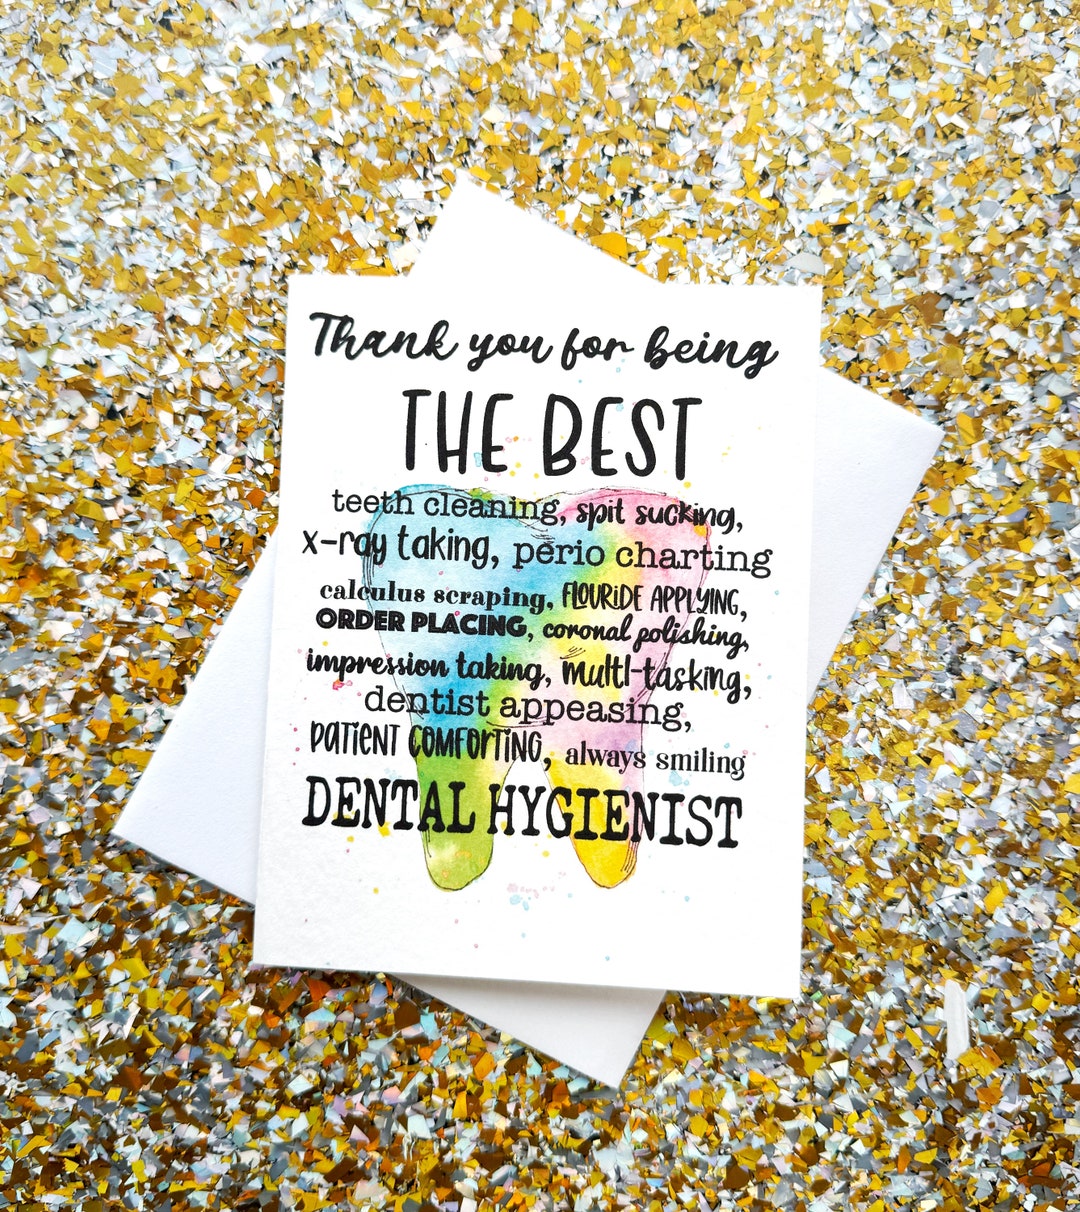 Thank you for being
THE BEST
teeth cleaning, spit sucking,
x-ray taking, perio charting
calculus scraping, FLOURIDE APPLYING,
ORDER PLACING, coronal polishing,
impression taking, multi-tasking,
dentist appeasing,
PATIENT COMFORTING, always smiling
DENTAL HYGIENIST